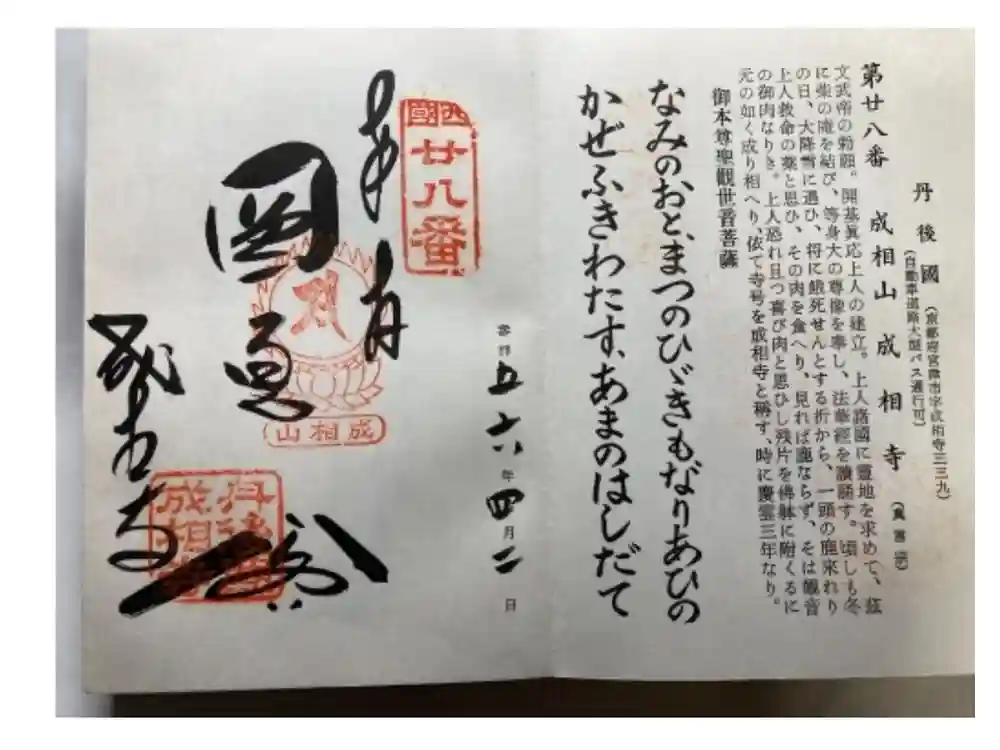 丹後國
(京都府宮津市字成相寺三三九)
(自動車道路大型バス通行可)
第廿八番 成相山成相寺 (真言宗)
文武帝の勅願。開基眞応上人の建立。上人諸國に靈地を求めて、茲
に柴の庵を結び、等身大の尊像を奉し、法華經を讀誦す。頃しも冬
の日、大降雪に遇ひ、将に餓死せんとする折から、一頭の鹿来れり
上人救命の薬と思ひ、その肉を食へり、見れば鹿ならず、そは観音
の御肉なりき。上人恐れ且つ喜び肉と思ひし残片を佛躰に附くるに
元の如く成り相へり、依て寺号を成相寺と稱す、時に慶雲三年なり。
御本尊聖觀世音菩薩
なみのおと、まつのひゞきもなりあひの
かぜふきわたす、あまのはしだて
五六年四月二日
西國
廿八番
奉拝
圓
成相山
成相寺